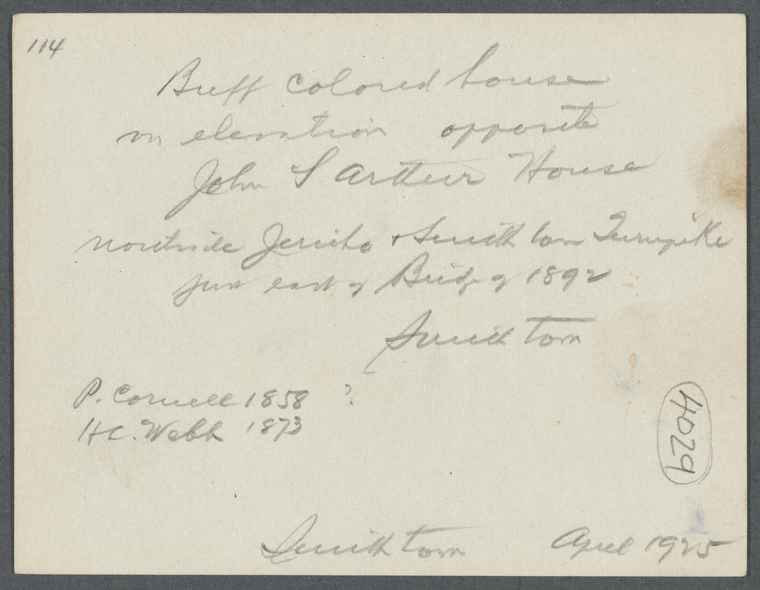 114
Buff colored house
on elevation opposite
John S Arthur House
northside Jericho + Smithtown Turnpike
just east of Bridge of 1892
Smithtown
P. Cornell 1858 ?
H.C. Webb 1873
4029
Smithtown April 1925